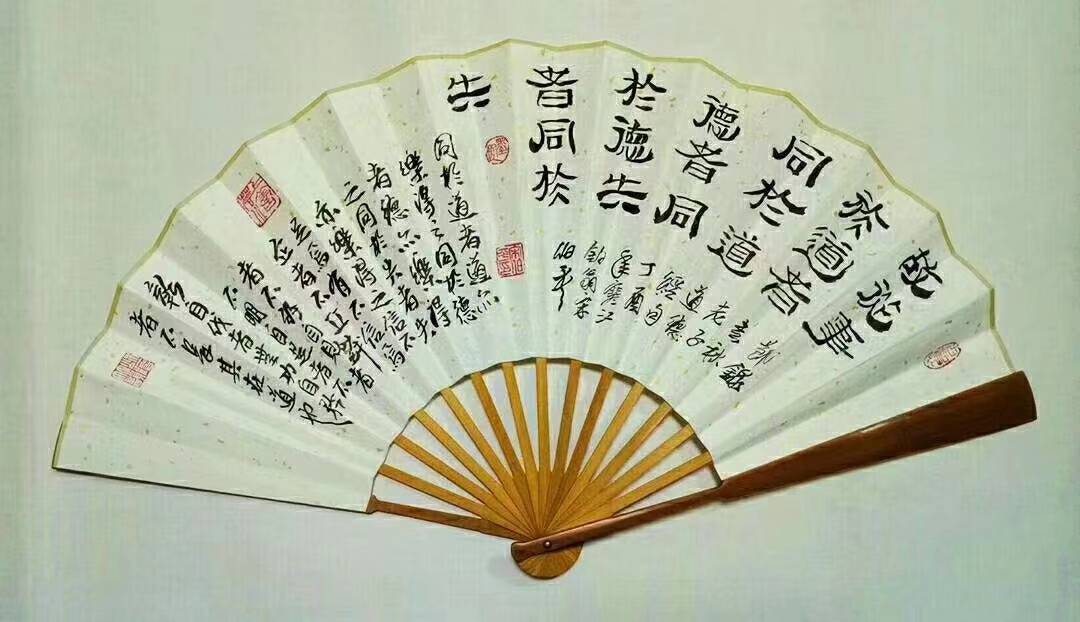 故從事
於道者
同於道
德者同
於德失
者同於
失
節錄
老子
道德
經句
丁酉
寒江
釣翁宋
同於道者道亦
樂得之同於德
者德亦樂得
之同於失者失
亦樂得之信不
足焉有不信焉
企者不立跨者
不行自見者
不明自是者不
彰自伐者無功自矜
者不長其在道也